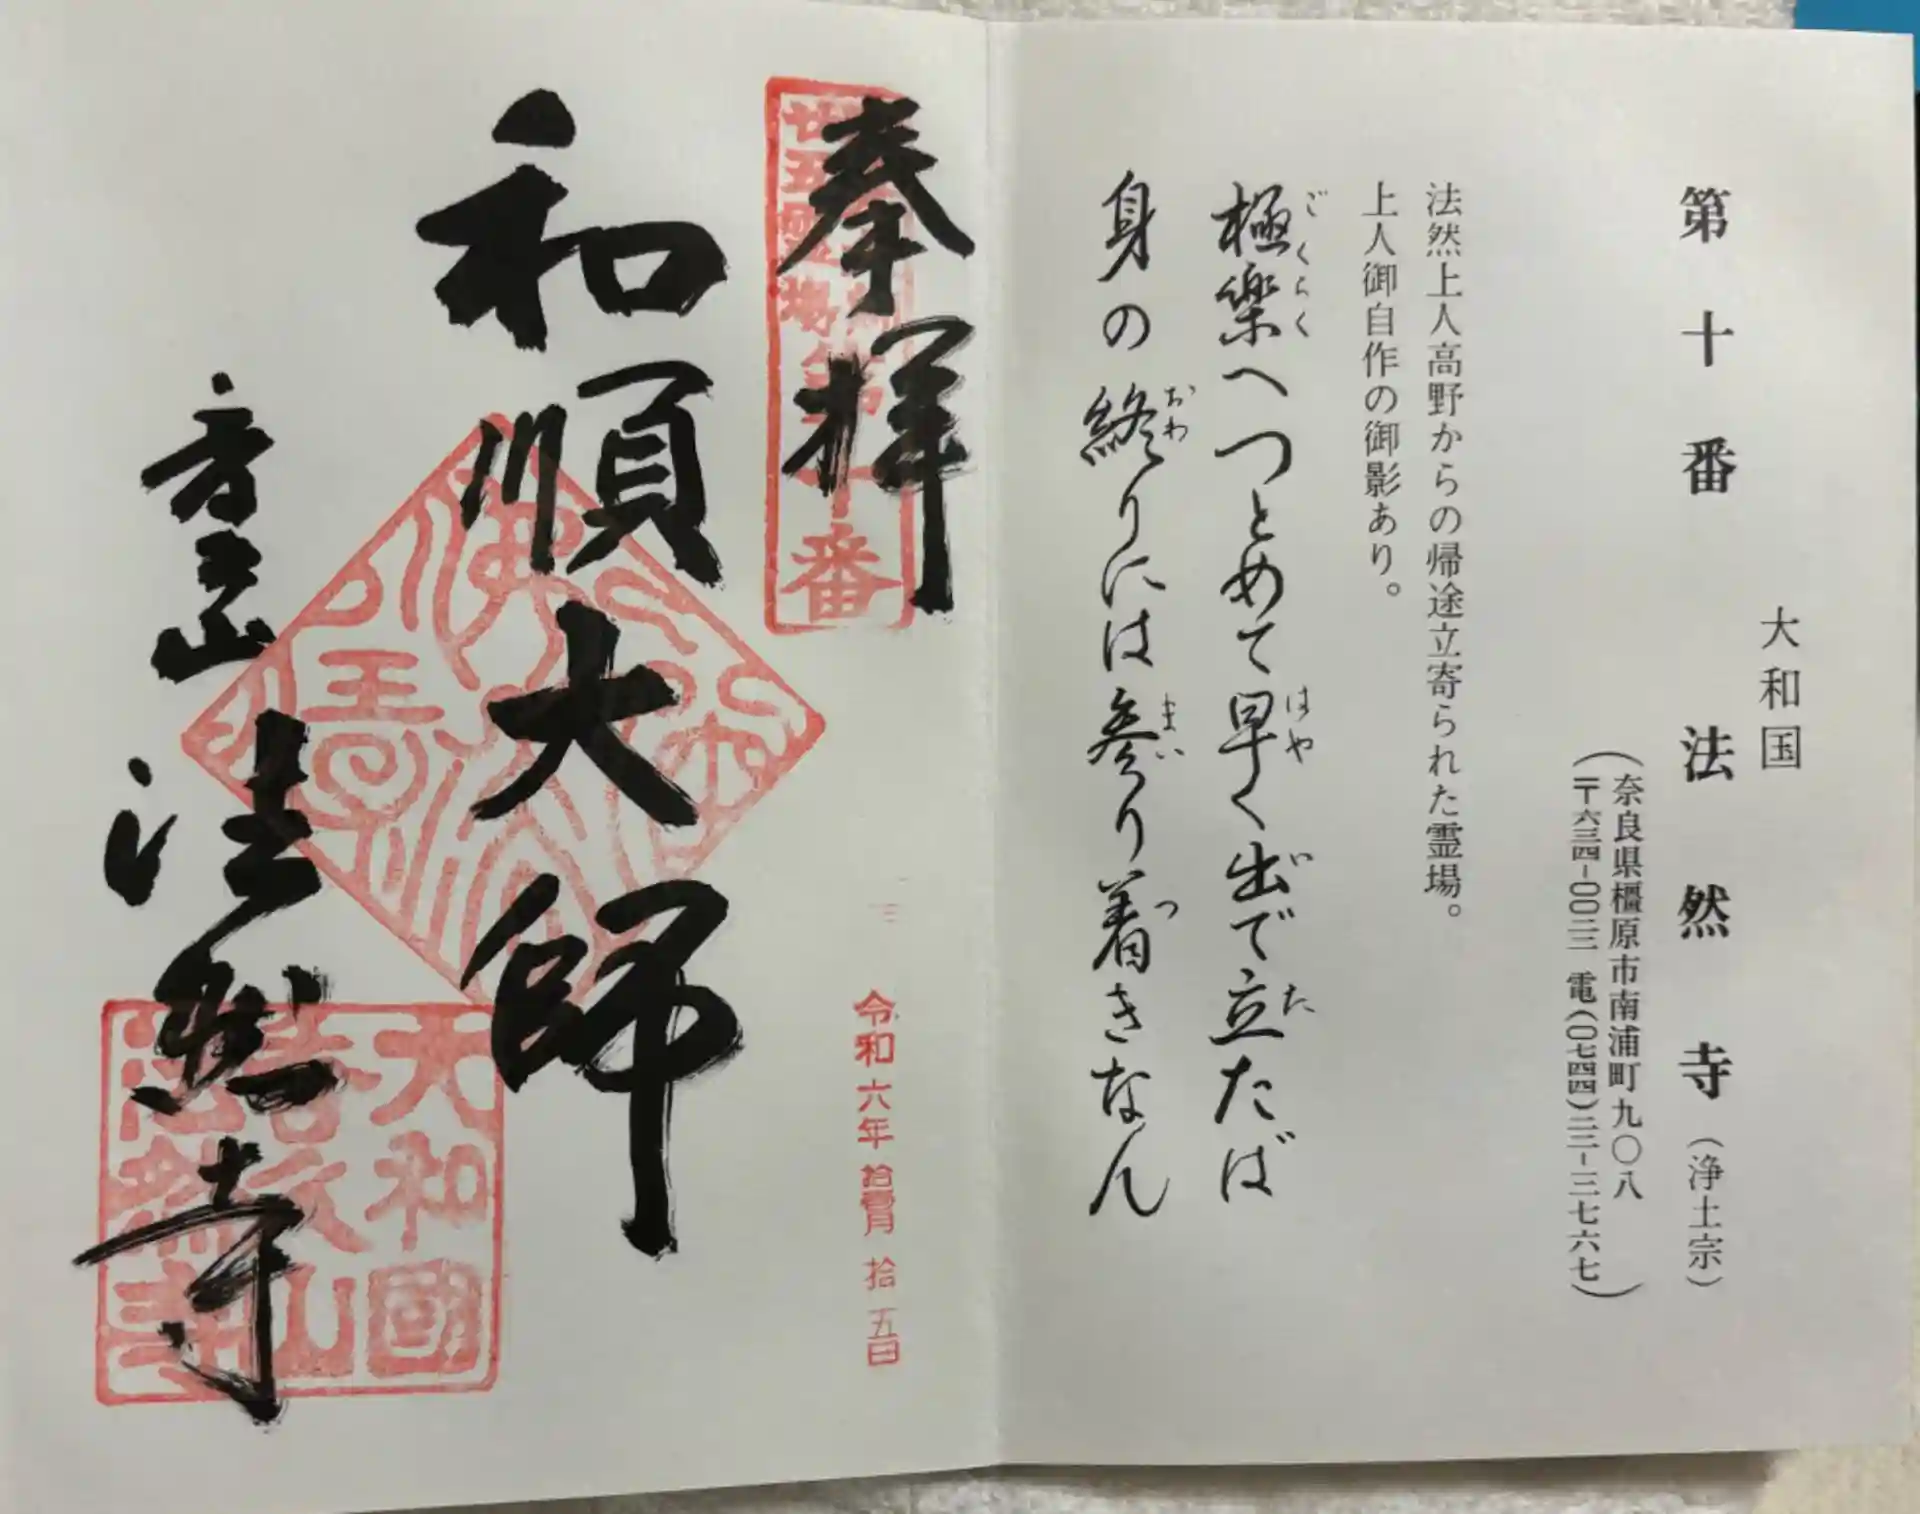 大和国
第十番 法然寺（浄土宗）
（奈良県橿原市南浦町九〇八
〒六三四-〇〇二三 電(〇七四四)二二-三七六七）
法然上人高野からの帰途立寄られた霊場。
上人御自作の御影あり。
極楽へつとめて早く出で立たば
ごくらく はや い た
身の終りには参り着きなん
おわ まい つ
奉拝
廿五霊場第十番
令和六年拾壹月拾五日
和順大師
法然寺
大和國
法然寺